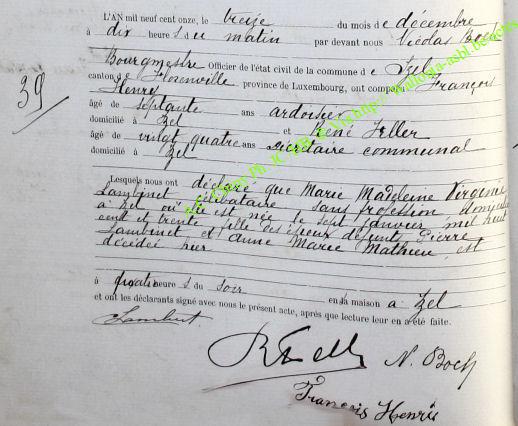 L'AN mil neuf cent onze, le treize du mois de décembre
à dix heures du matin par devant nous Nicolas Boch
Bourgmestre Officier de l'état civil de la commune de Izel
canton de Florenville province de Luxembourg, ont comparu François
Henry
39
âgé de septante ans ardoisier
domicilié à Izel et René Feller
âgé de vingt quatre ans secrétaire communal
domicilié à Izel
Lesquels nous ont déclaré que Marie Madeleine Virginie
Lambinet célibataire sans profession, domiciliée
à Izel où elle est née le sept janvier mil huit
cent et trente fille des époux défunts Pierre
Lambinet et Anne Marie Mathieu, est
décédée hier
à quatre heures du soir en sa maison à Izel
et ont les déclarants signé avec nous le présent acte, après que lecture leur en a été faite.
Lambinet.
N. Boch
François Henri